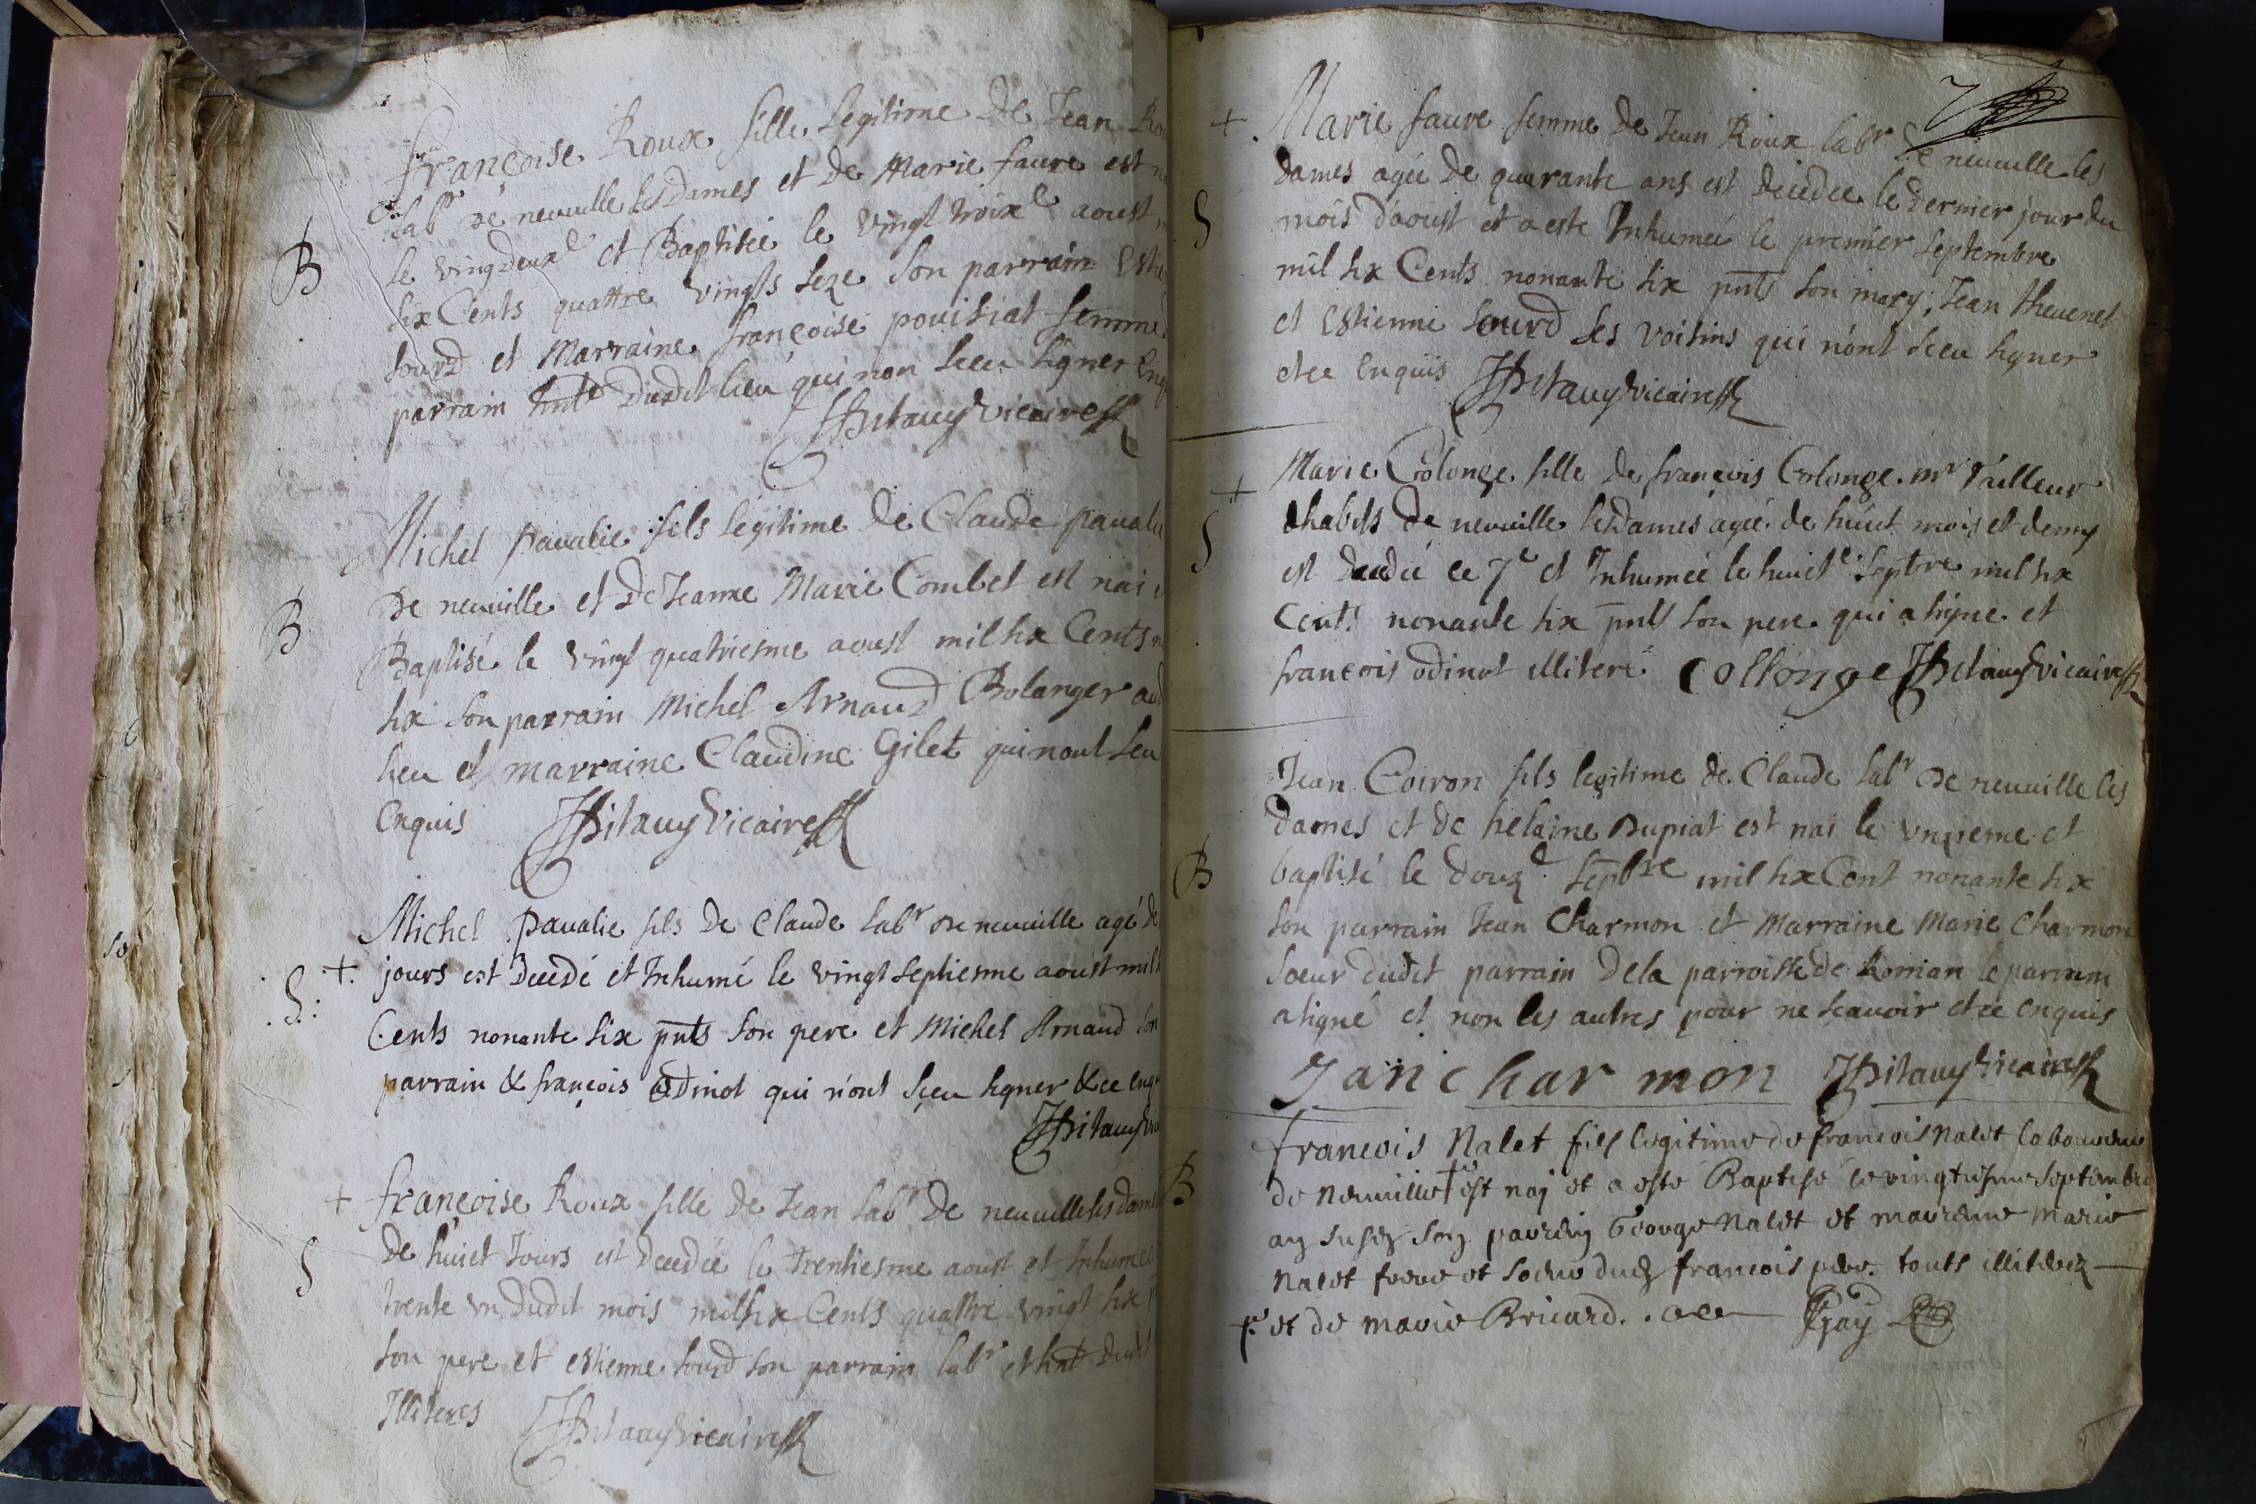 françoise Roux fille Legitime De Jean Ro
Lab^r De neuuille lesDames et de Marie faure est n
B
le vingdeux^e et Baptisée le vingt troix^e aoust m
six Cents quattre vingts seze son parrain Esti
sourd et Marraine françoise pouisiat femme
parrain hnt^e Dudit lieu qui non sceu signer Enq
JBitauy Vicaire
Michel pavalie fils legitime De Claude pavalie
De neuuille et De Jeanne Marie Combet est nai e
B
Baptisé le vingt quatriesme aoust mil six Cents n
six son parrain Michel Arnaud Bolanger aud
lieu et marraine Claudine Gilet qui nont sceu
Enquis JBitauy Vicaire
Michel pavalie fils De Claude Lab^r De neuuille agé de
S. +. jours est Decedé et Inhumé le vingt septiesme aoust mil s
Cents nonante six pnts son pere et Michel Arnaud son
parrain & françois odinot qui n'ont sçeu signer & ce enq
JBitauy Vic
+ françoise Roux fille De Jean Lab^r De neuuille lesdames
S
De huict Jours est Decedée le trentiesme aoust et Inhumée
trente vn dudit mois mil six Cents quattre vingt six p
son pere et estienne sourd son parrain lab^r et hnt Dudit
Illiteres JBitauy vicaire
7
+. Marie faure femme De Jean Roux lab^r De neuuille les
dames agée De quarante ans est decedee le dernier jour du
S
mois d'aoust et a este Inhumée le premier septembre
mil six Cents nonante six pnts son mary, Jean theuenet
et Estienne sourd ses voisins qui n'ont sceu signer
et ce Enquis JBitauy vicaire
+ Marie Colonge fille De françois Colonge m^r tailleur
S
dhabits De neuuille lesDames agée de huict mois et demy
est decedée le 7^e et Inhumée le huict^e Septbre mil six
Cents nonante six pnts son pere qui a signe et
françois odinot illiteré collonge JBitauy vicaire
Jean Coiron fils legitime de Claude lab^r De neuuille les
dames et de helaine Dupiat est nai le vnzieme et
B
baptisé le douz^e Septbre mil six Cent nonante six
son parrain Jean Charmon et Marraine Marie Charmon
soeur dudit parrain De la parroisse de Roman le parrain
a signé et non les autres pour ne scauoir et ce enquis
Jan char mon JBitauy vicaire
francois Nalet fils legitime de francois Nalet laboureur
B
de Neuuille + est naj et a esté Baptisé le vingtiesme septembre
an susd son parrein George Nalet et marreine Marie
Nalet frere et soeur dud francois pere touts illiterez
+ et de marie Bricard. Gay